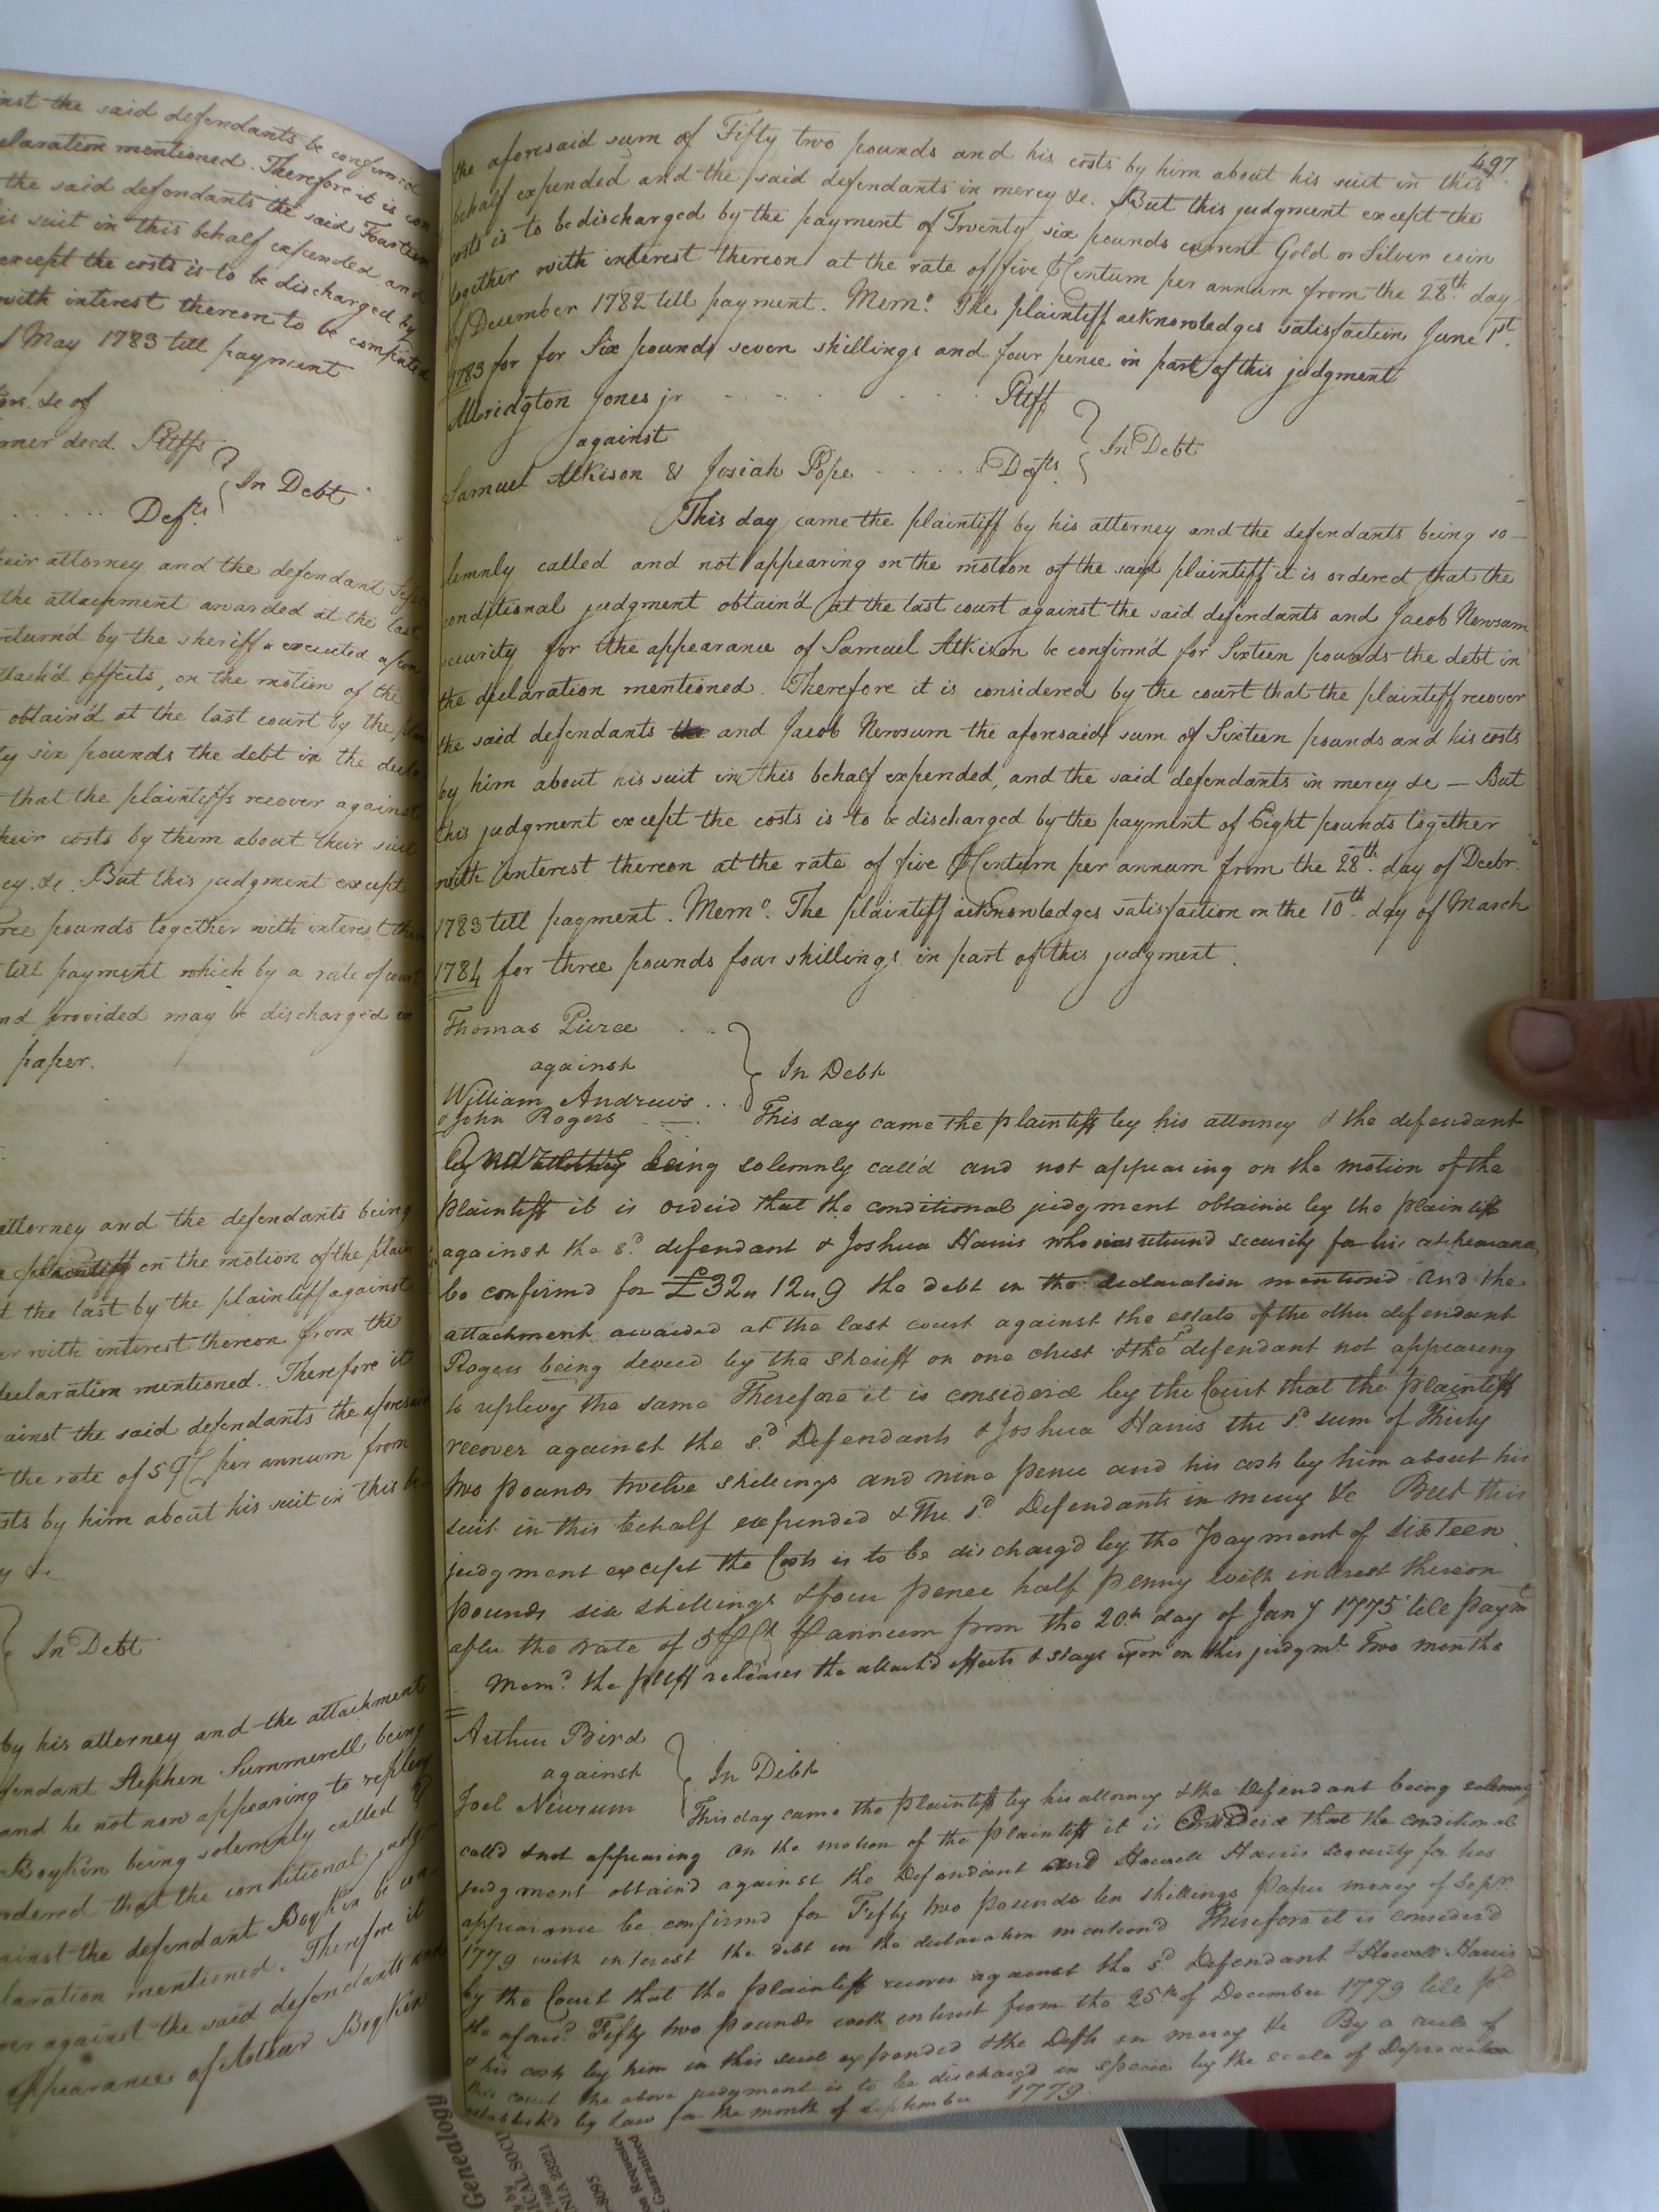 inst the said defendants be confirmed
claration mentioned. Therefore it is con
the said defendants the said Fourteen
is suit in this behalf expended and
except the costs is to be discharged by
with interest thereon to be computed
f May 1783 till payment
&c of
rner decd. Pltffs
In Debt
Defts.
eir attorney and the defendant
the attachment awarded at the last
return'd by the sheriff executed
ttach'd effects, on the motion of the
obtain'd at the last court by the
ty six pounds the debt in the decla
that the plaintiffs recover against
heir costs by them about their suit
cy &c. But this judgment except
ree pounds together with interest
till payment which by a rule of court
nd provided may be discharged in
paper.
attorney and the defendants being
plaintiff on the motion of the plain
t the last by the plaintiff against
er with interest thereon from the
declaration mentioned. Therefore it
ainst the said defendants the aforesaid
the rate of 5 P Ct per annum from
sts by him about his suit in this be
In Debt
by his attorney and the attachment
fendant Stephen Summerell being
and he not now appearing to replevy
Boykin being solemnly called &
ordered that the conditional judg
ainst the defendant Boykin be con
laration mentioned. Therefore it
ver against the said defendants and
appearance of Arthur Boykin
497
the aforesaid sum of Fifty two pounds and his costs by him about his suit in this
behalf expended and the said defendants in mercy &c. But this judgment except the
costs is to be discharged by the payment of Twenty six pounds current Gold or Silver coin
together with interest thereon at the rate of five P Centum per annum from the 28th. day
of December 1782 till payment. Memo. The plaintiff acknowledges satisfaction June 1st.
1783 for for Six pounds seven shillings and four pence in part of this judgment
Albridgton Jones jr Pltff
against
In Debt
Samuel Atkison & Josiah Pope Defts.
This day came the plaintiff by his attorney and the defendants being so-
lemnly called and not appearing on the motion of the said plaintiff it is ordered that the
conditional judgment obtain'd at the last court against the said defendants and Jacob Newsum
security for the appearance of Samuel Atkison be confirm'd for Sixteen pounds the debt in
the declaration mentioned. Therefore it is considered by the court that the plaintiff recover
the said defendants the and Jacob Newsum the aforesaid sum of Sixteen pounds and his costs
by him about his suit in this behalf expended, and the said defendants in mercy &c — But
this judgment except the costs is to be discharged by the payment of Eight pounds together
with interest thereon at the rate of five P Centum per annum from the 28th. day of Decbr.
1783 till payment. Memo. The plaintiff acknowledges satisfaction on the 10th. day of March
1784 for three pounds four shillings in part of this judgment.
Thomas Pierce
against
In Debt
William Andrews
& John Rogers This day came the plaintiff by his attorney & the defendant
Andrews being solemnly call'd and not appearing on the motion of the
plaintiff it is order'd that the conditional judgment obtain'd by the plaintiff
against the sd. defendant & Joshua Harris who was return'd security for his appearance
be confirmd for £32 " 12 " 9 the debt in the declaration mentiond and the
attachment awarded at the last court against the estate of the other defendant
Rogers being levied by the Sheriff on one chest & the sd defendant not appearing
to replevy the same Therefore it is considered by the Court that the plaintiff
recover against the sd. Defendants & Joshua Harris the sd. sum of Thirty
two pounds twelve shillings and nine pence and his costs by him about his
suit in this behalf expended & the sd. Defendants in mercy &c But this
judgment except the Costs is to be discharg'd by the payment of Sixteen
pounds six shillings & four pence half penny with interest thereon
after the rate of 5 P Ct P annum from the 20th day of Jany 1775 till paymt
Memo. the pltff releases the attach'd effects & stays exon on this judgmt. Two months
Arthur Bird
against
In Debt
Joel Newsum This day came the plaintiff by his attorney & the Defendant being solemnly
call'd & not appearing on the motion of the plaintiff it is Considerd that the conditional
judgment obtain'd against the Defendant and Howell Harris security for his
appearance be confirmd for Fifty two pounds ten shillings Paper money of Sepr.
1779 with interest the debt in the declaration mention'd Therefore it is considerd
by the Court that the plaintiff recover against the sd. Defendant & Howell Harris
the aforesd. Fifty two pounds with interest from the 25th of December 1779 till pd.
& his costs by him in this suit expended & the Defts in mercy &c By a rule of
this court the above judgment is to be discharg'd in specie by the scale of Depreciation
establish'd by law for the month of September 1779.
Genealogy